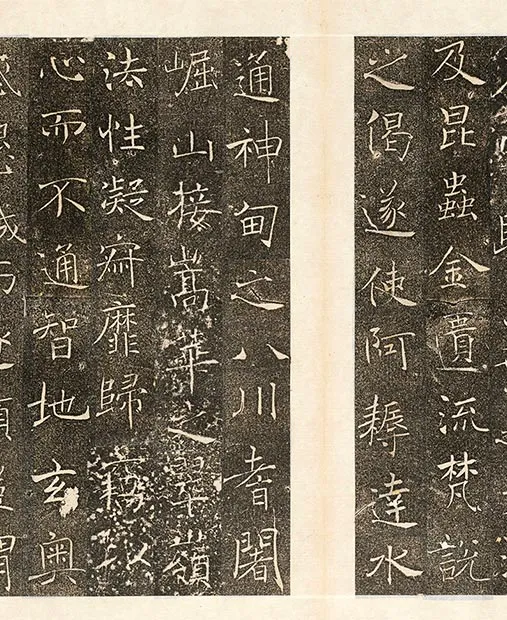 及昆蟲金遺流梵說
之偈遂使阿耨達水
通神甸之八川耆闍
崛山接嵩華之翠嶺
法性凝寂靡歸以
心而不通智地玄奥